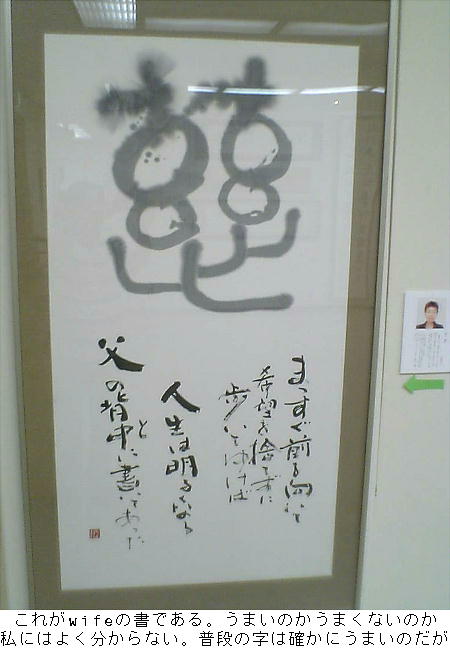 まっすぐ前を向いて
希望を捨てずに
歩いてゆけば
人生は明るくなる
と
父の背中に書いてあった
これがwifeの書である。うまいのかうまくないのか
私にはよく分からない。普段の字は確かにうまいのだが